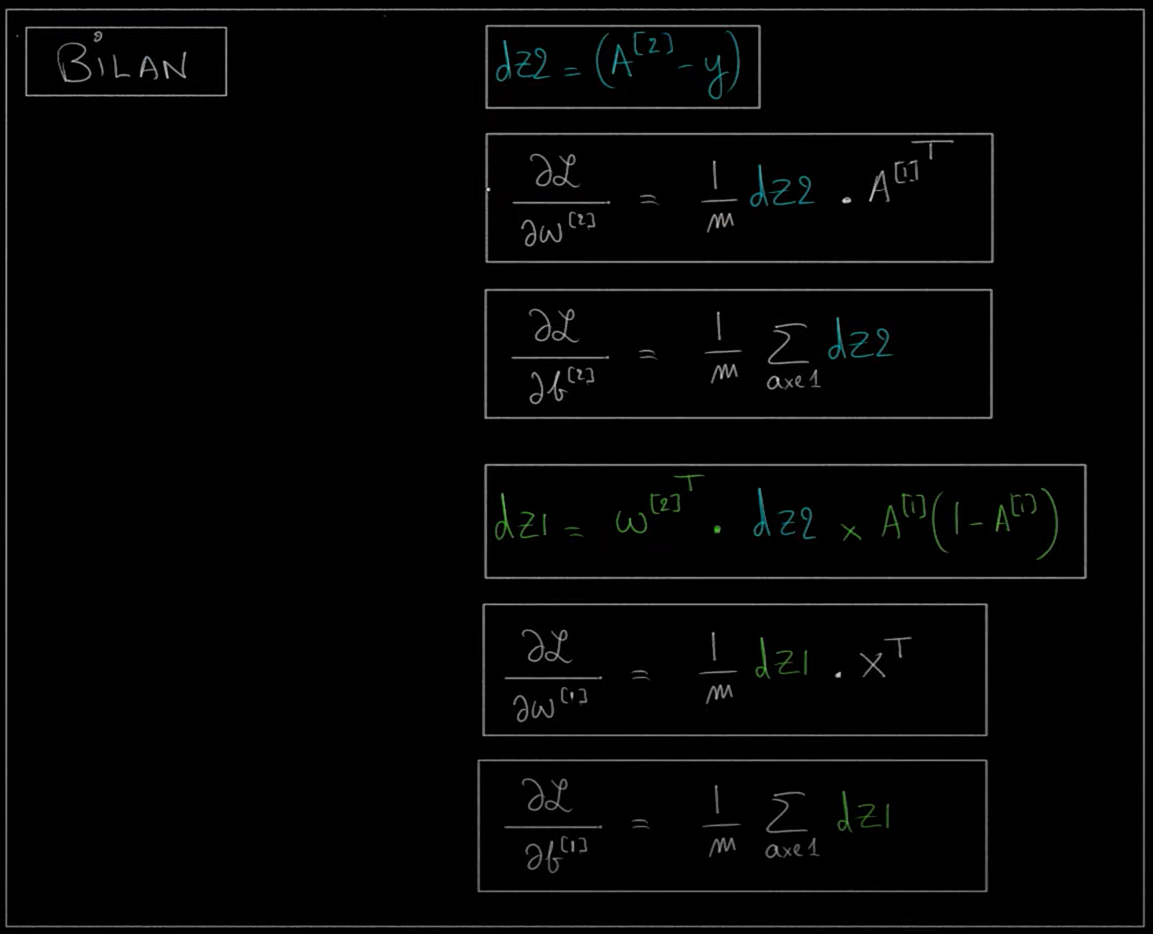 BILAN
dz2 = (A^[2] - y)
∂ℒ/∂w^[2] = 1/m dz2 . A^[1]^T
∂ℒ/∂b^[2] = 1/m Σ_axe 1 dz2
dz1 = w^[2]^T . dz2 × A^[1](1 - A^[1])
∂ℒ/∂w^[1] = 1/m dz1 . X^T
∂ℒ/∂b^[1] = 1/m Σ_axe 1 dz1